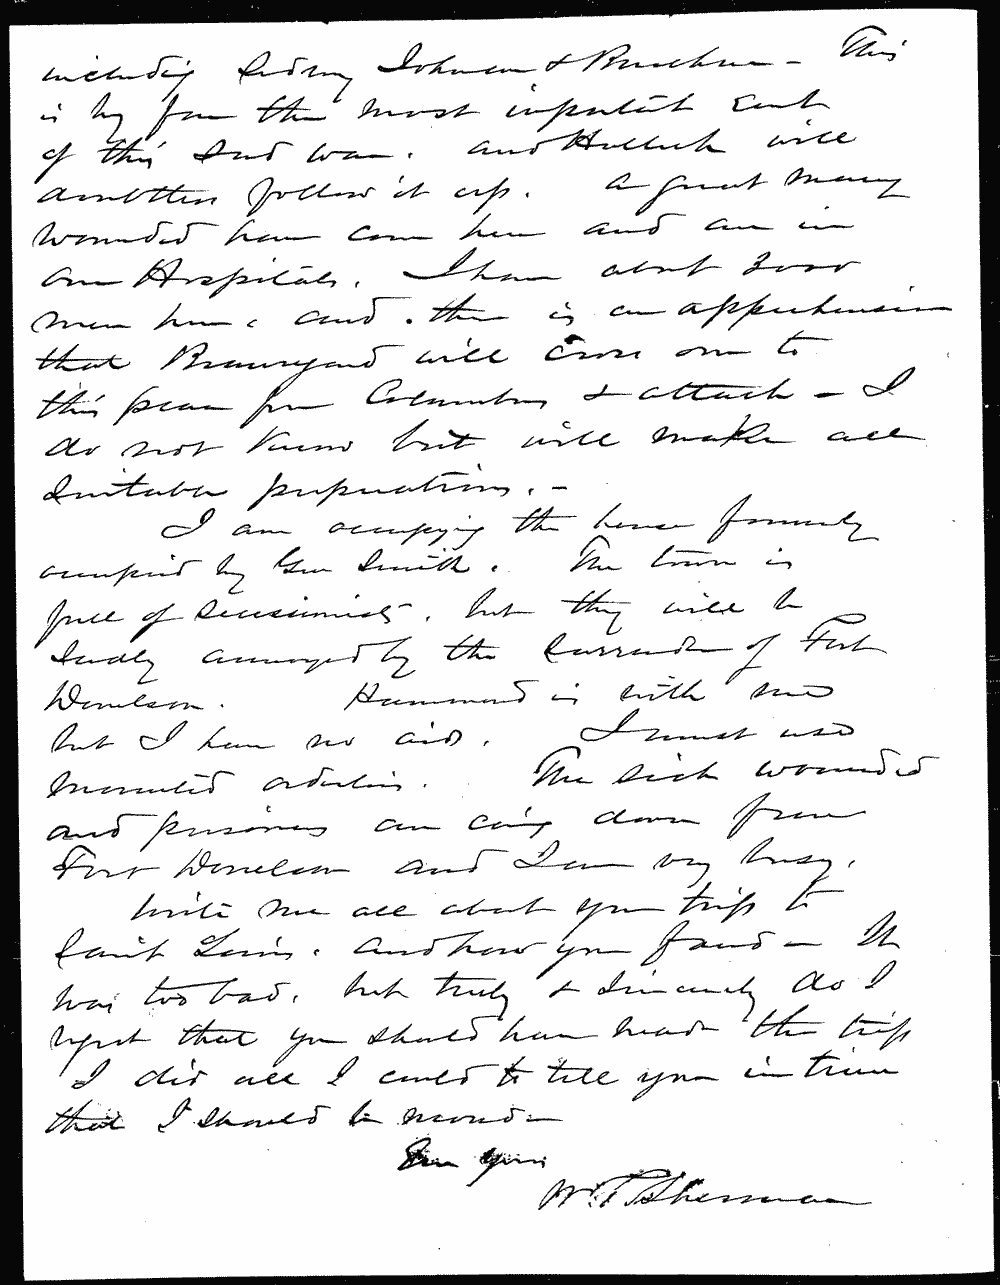 including Sidney Johnson & Buckner – This
is by far the most important event
of this sad war. and Halleck will
doubtless follow it up. A great many
wounded have come here and are in
our Hospitals. I have about 2000
men here, and there is an apprehension
that Beauregard will cross over to
this place from Columbus & attack – I
do not know but will make all
suitable preparations. –
I am occupying the house formerly
occupied by Gen Smith. The town is
full of secessionists, but they will be
sadly annoyed by the surrender of Fort
Donelson. Hammond is with me
but I have no aid. I must use
mounted orderlies. The sick wounded
and prisoners are coming down from
Fort Donelson and I am very busy.
Write me all about your trip to
Saint Louis. and how you fared – It
was too bad, but truly & sincerely do I
regret that you should have made the trip
I did all I could to tell you in time
that I should be moved –
Ever Yours
W. T. Sherman